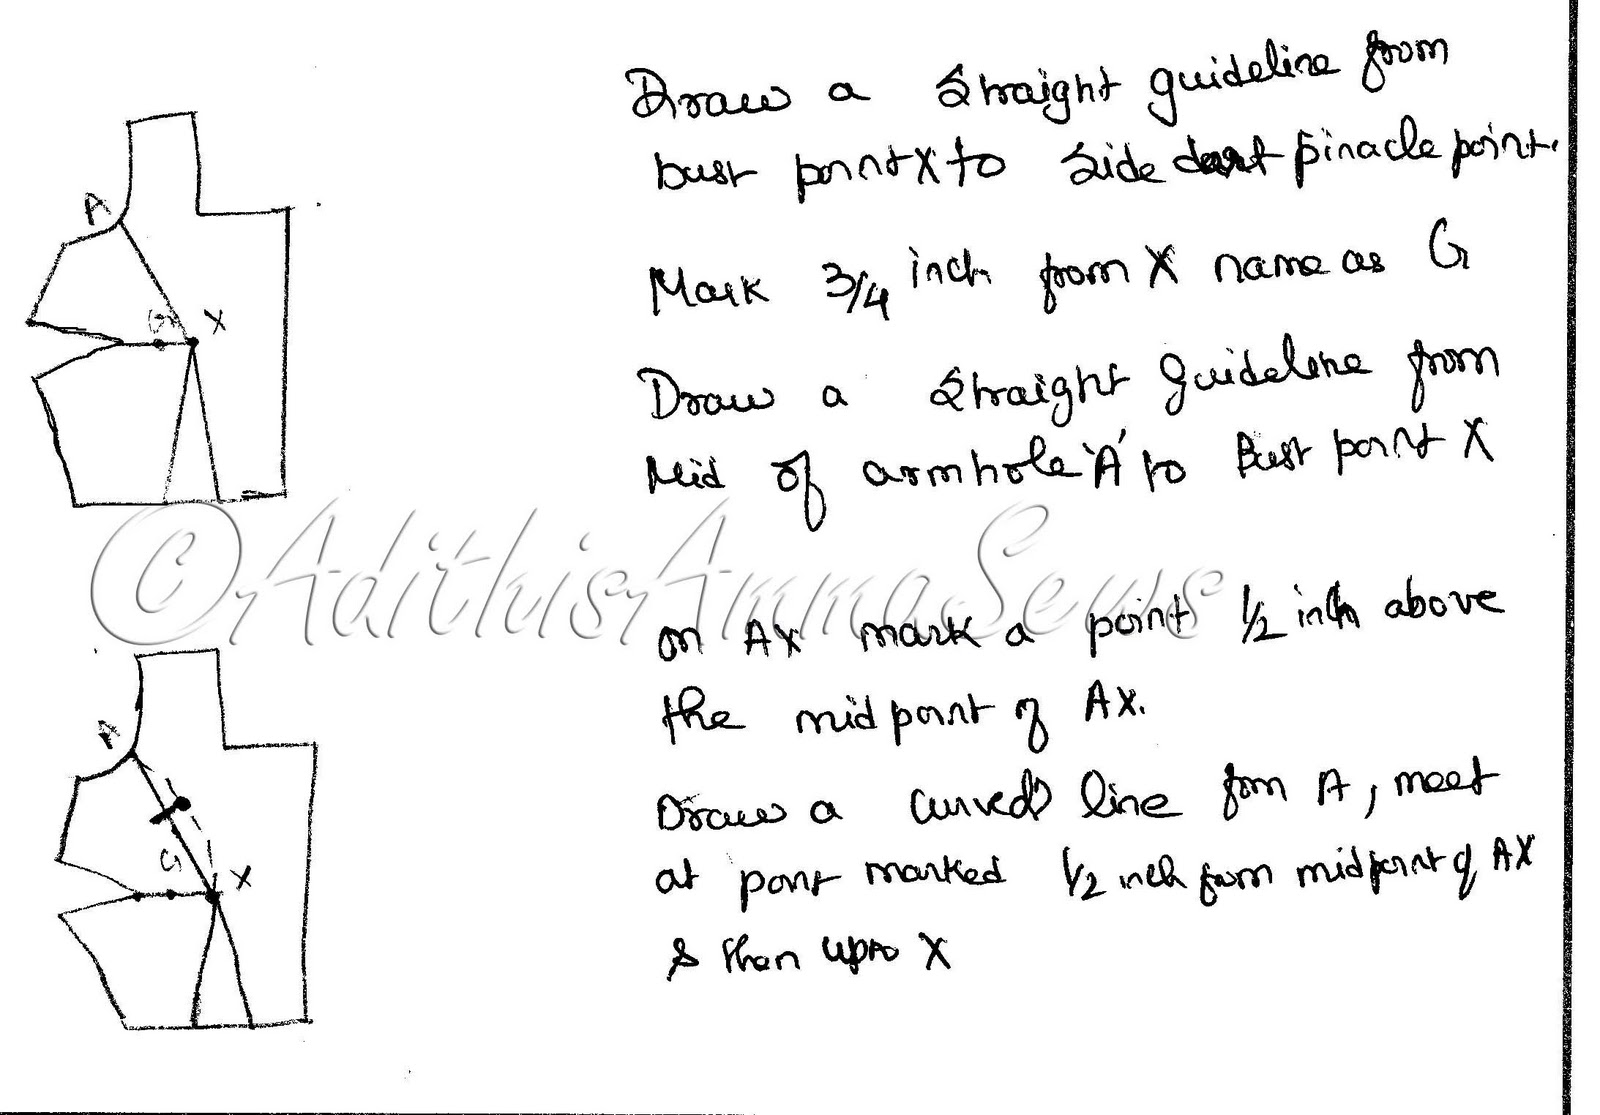 Draw a straight guideline from
bust point X to side dart pinacle point.
A
Mark 3/4 inch from X name as G
G
X
Draw a straight guideline from
Mid of armhole 'A' to Bust point X
©AdithisAmmaSews
on AX mark a point 1/2 inch above
the midpoint of AX.
A
Draw a curved line from A, meet
at point marked 1/2 inch from midpoint of AX
G
X
& then upto X